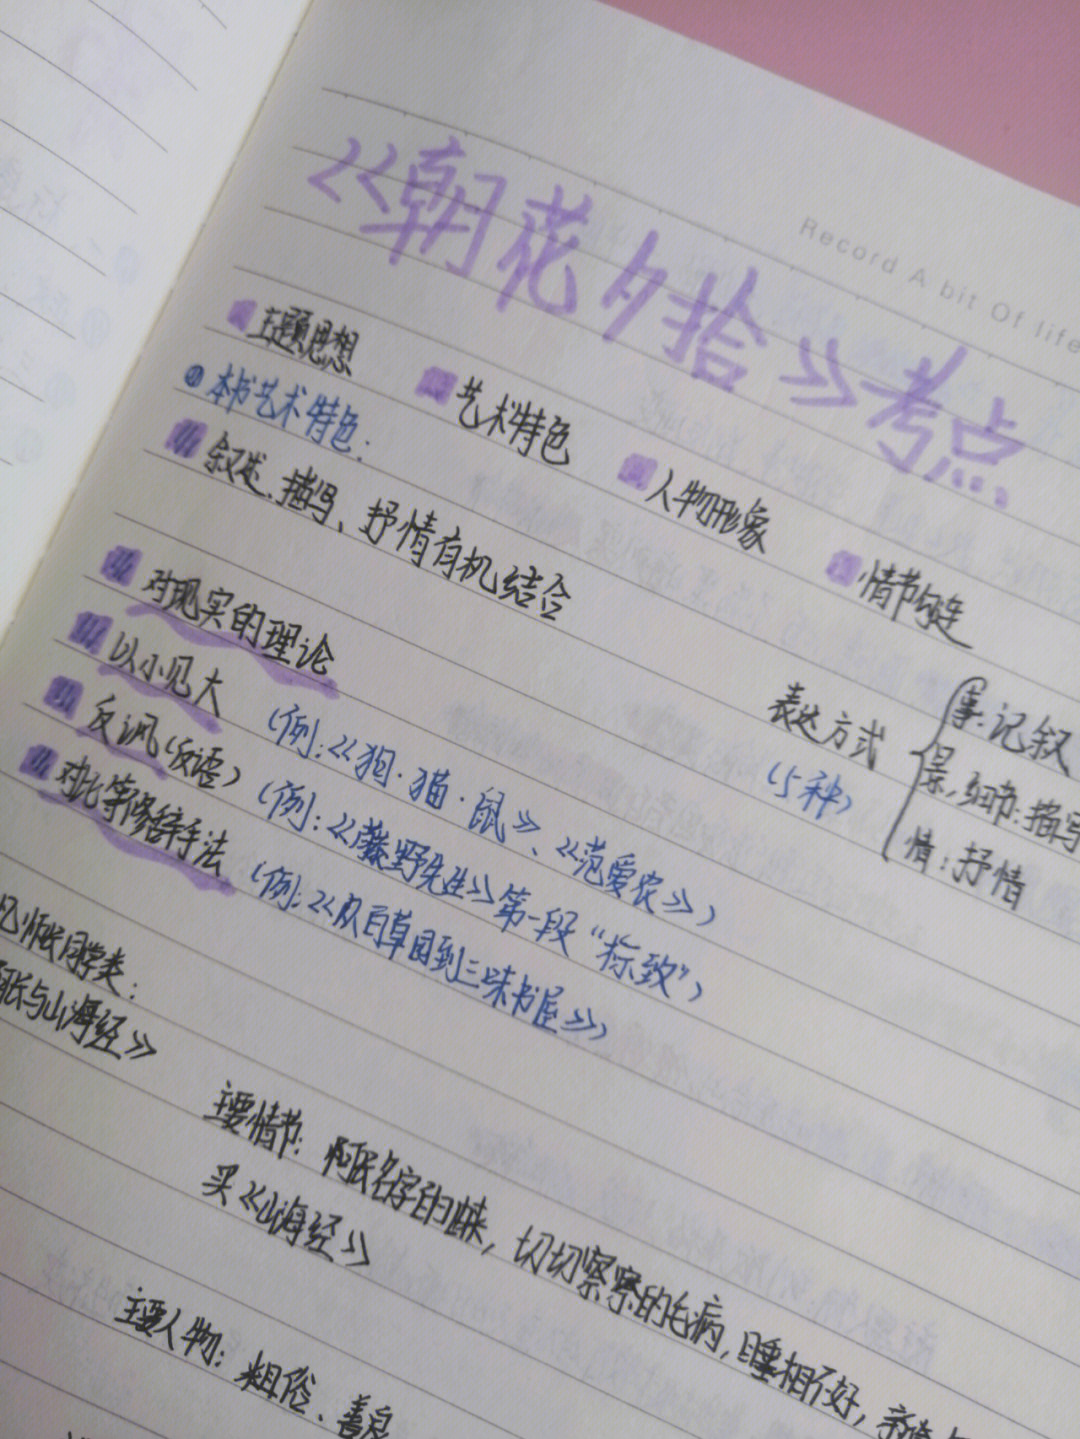 Record A bit Of life
《朝花夕拾》考点
主题思想 艺术特色 人物形象 情节勾连
①本书艺术特色:
叙述、描写、抒情有机结合
对现实的理论
以小见大 (例:《狗·猫·鼠》、《范爱农》)
反讽(反语) (例:《藤野先生》第一段“标致”)
对比等修辞手法 (例:《从百草园到三味书屋》)
表达方式 (5种)
事:记叙
景,细节:描写
情:抒情
忆师长同学类:
阿长与山海经》
主要情节: 阿长名字的由来, 切切察察的毛病, 睡相不好,
买《山海经》
主要人物: 粗俗、善良